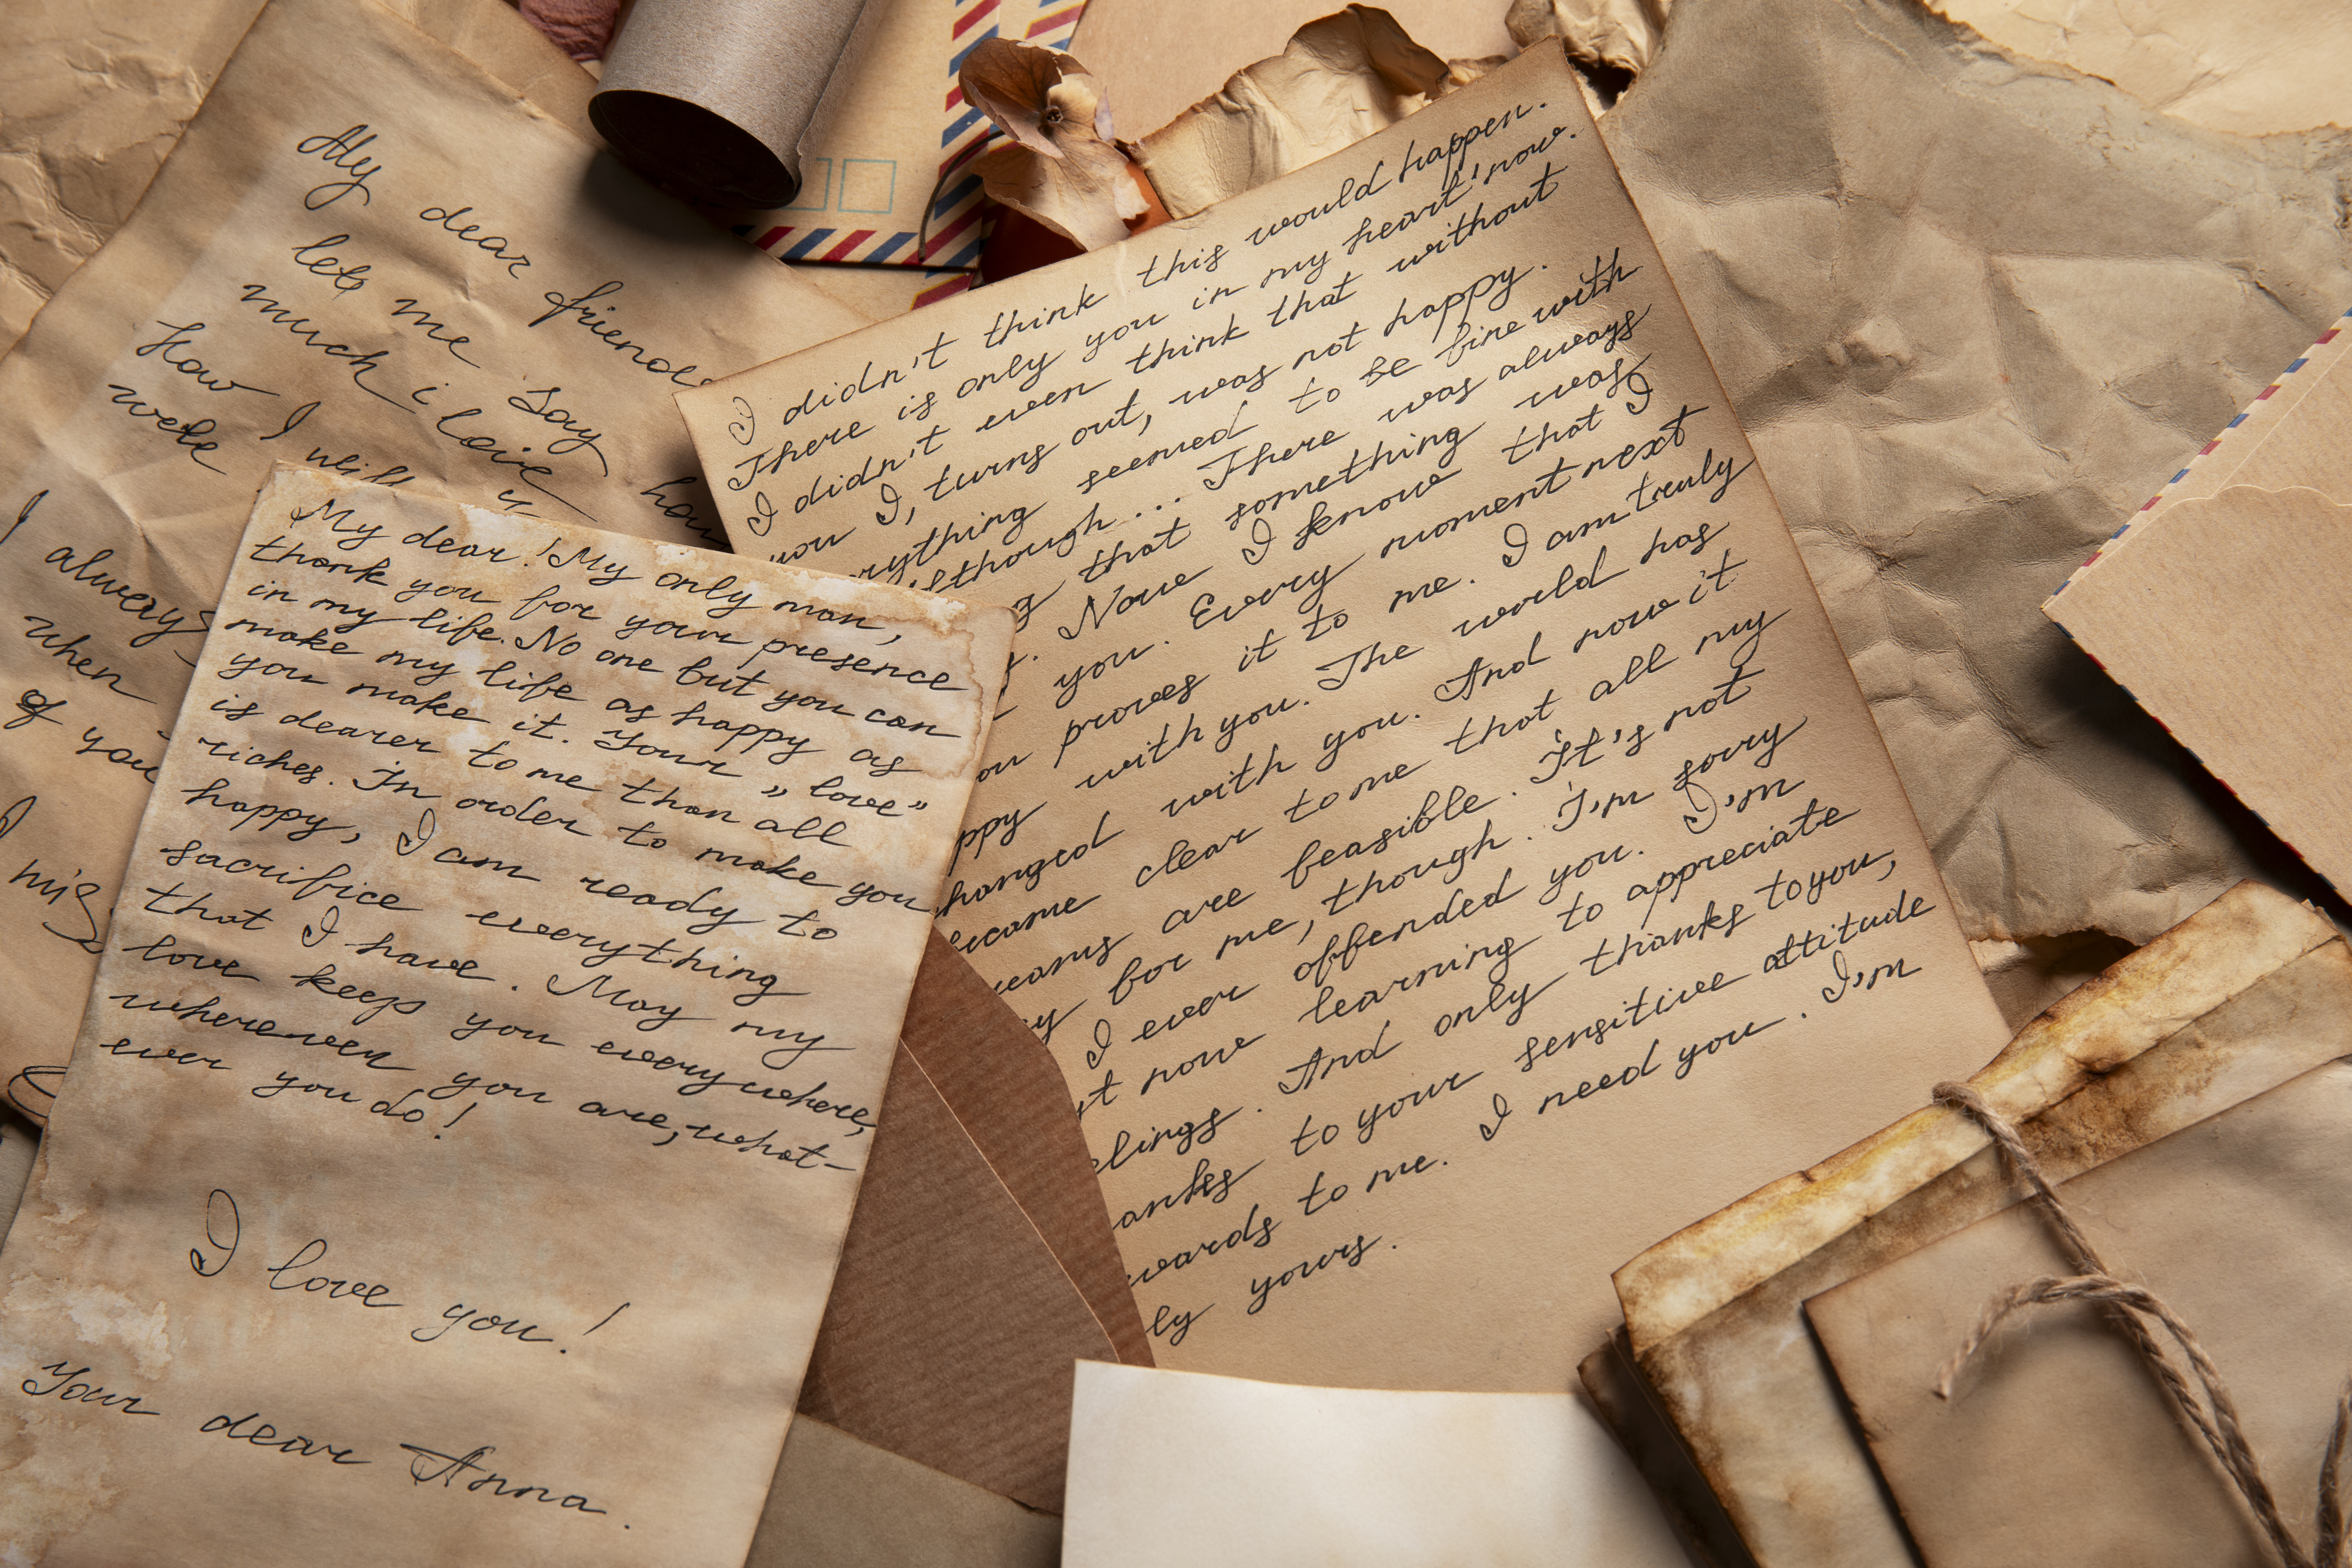 My dear friend
let me say
much i love
how I will
wele
y
how
I
always
when
of you
I mis
My dear! My only man,
thank you for your presence
in my life. No one but you can
make my life as happy as
you make it. Your „love”
is dearer to me than all
riches. In order to make you
happy, I am ready to
sacrifice everything
that I have. May my
love keep you everywhere,
wherewer you are, what-
ever you do!
I love you!
Your dear Anna.
I didn't think this would happen.
There is only you in my heart now.
I didn't even think that without
you I, turns out, was not happy.
rything seemed to be fine with
lthough... There was always
g that something was
t. Now I know that I
you. Every moment next
ou proves it to me. I am truly
ppy with you. The world has
hanged with you. And now it
ecame clear to me that all my
reams are feasible. It's not
sy for me, though. I'm sorry
I ever offended you. I'm
st now learning to appreciate
elings. And only thanks to you,
anks to your sensitive attitude
wards to me. I need you. I'm
ly yours.